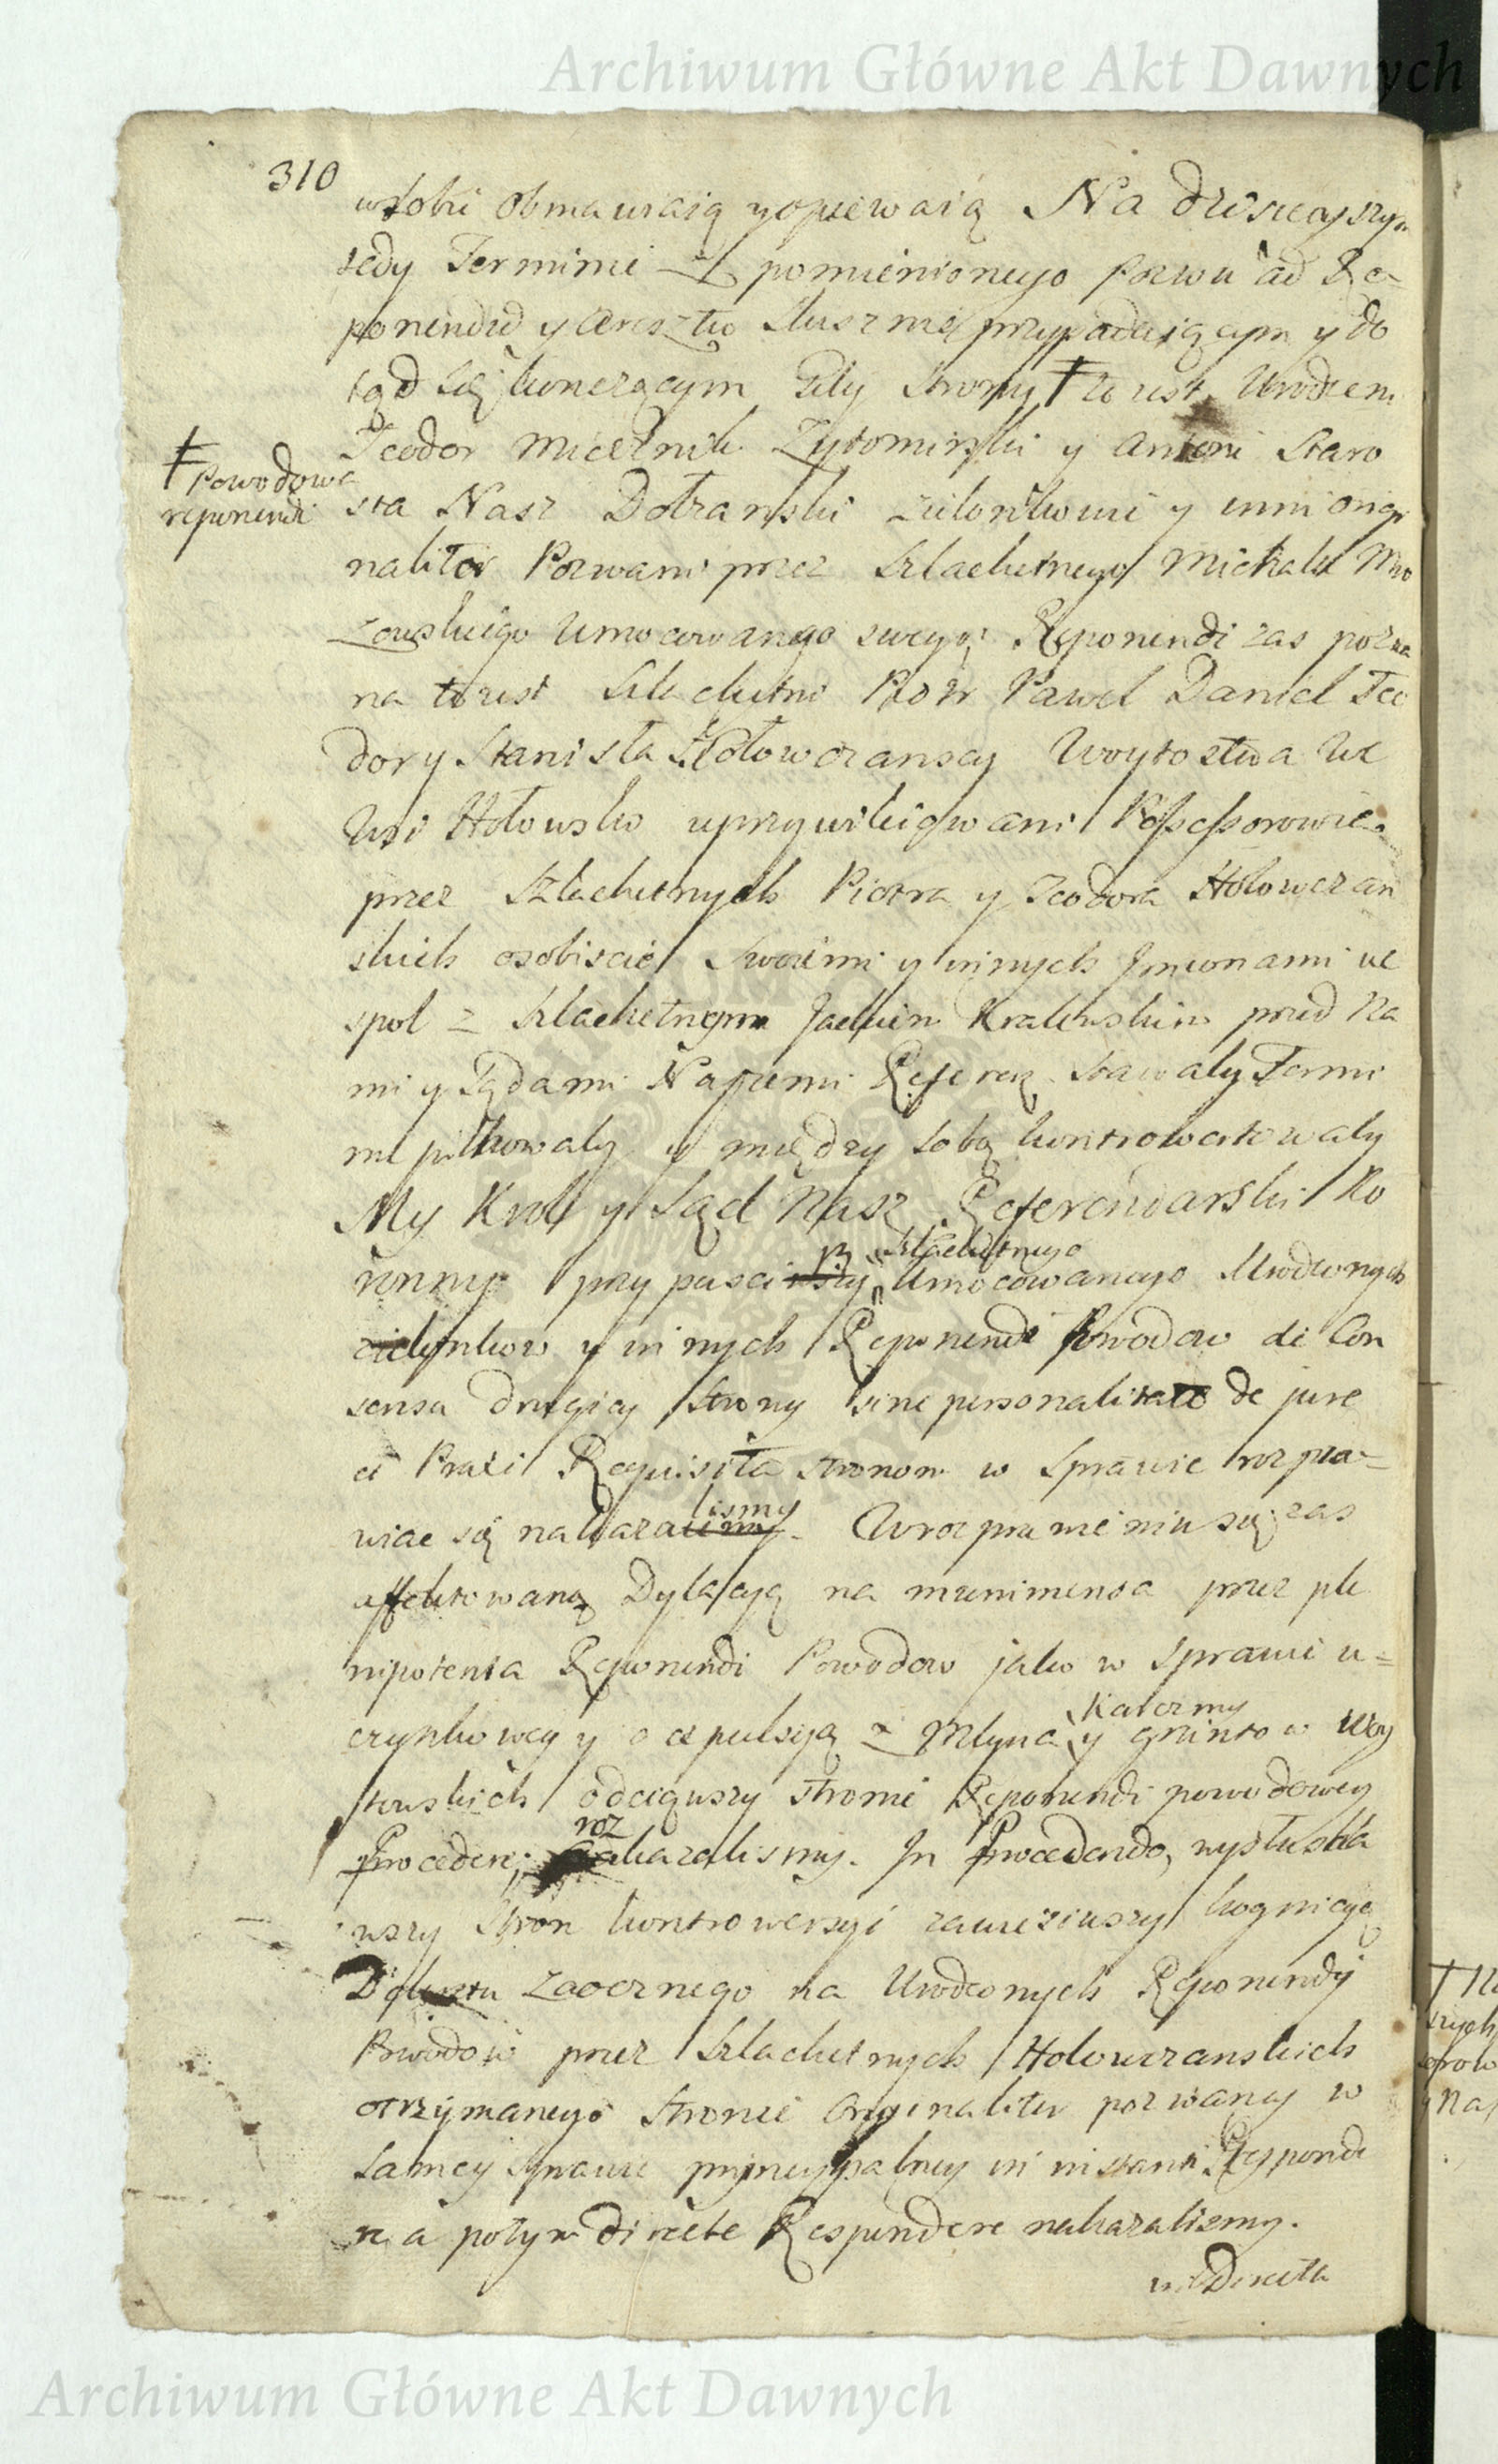 Archiwum Główne Akt Dawnych
310
w sobie obmawiaią y opiewaią Na dzisieyszym
tedy Terminie z pomienionego Pozwu ad Re=
ponendū y Aresztu Słusznie przypadaiącym y do
tąd się konczącym Gdy Strony ‡ to iest Urodzeni
Teodor Miecznik Zytomirski y Antoni Staro
‡ Powodowe
reponendi
sta Nasz Dolzanski Zielonkowie y inni origi
naliter Pozwani przez Szlachetnego Michała Mro
zowskiego Umocowanego swego Reponendi zas pozwa
na to iest Szlachetni Piotr Paweł Daniel Teo
dor y Stanisła Hołowczanscy Woytostwa we
Wsi Hołowsko uprzywileiowani Possessorowie
przez Szlachetnych Piotra y Teodora Hołowczan
skich osobiscie swoiemi y innych Jmionami we
społ z Szlachetnym Jackiem Kralewskim przed Na
mi y Sądami Naszemi Referen. stawały Termi
nu pilnowały y między sobą kontrowertowały
My Krol y Sąd Nasz Referendarski Ko
ronny przypusci Umocowanego Urodzonych
Szlachetnego
Zielonkow y innych Reponendi Powodow de Con
sensu drugiey Strony sine personalitate de jure
et Praxi Requisita stronom w Sprawie rozpra=
wiac się nakaza
lismy
W rozprawieniu się zas
affektowaną Dylacyą na munimenta przez ple
nipotenta Reponendi Powodow jako w Sprawie u=
czynkowey y o expulsyą z Młyna y gruntow Woy
Karczmy
towskich odciąwszy stronie Reponendi powodowey
Procedere nakazalismy. In Procedendo, wysłucha
wszy Stron kontrowersyi zawiesiwszy kognicyą
Dekretu Zaocznego na Urodzonych Reponendi
Powodow przez Szlachetnych Hołowczanskich
otrzymanego Stronie Originaliter pozwaney w
Samey Sprawie pryncypalney in instanti Responde
re a potym directe Respondere nakazalismy.
Directa
Archiwum Główne Akt Dawnych